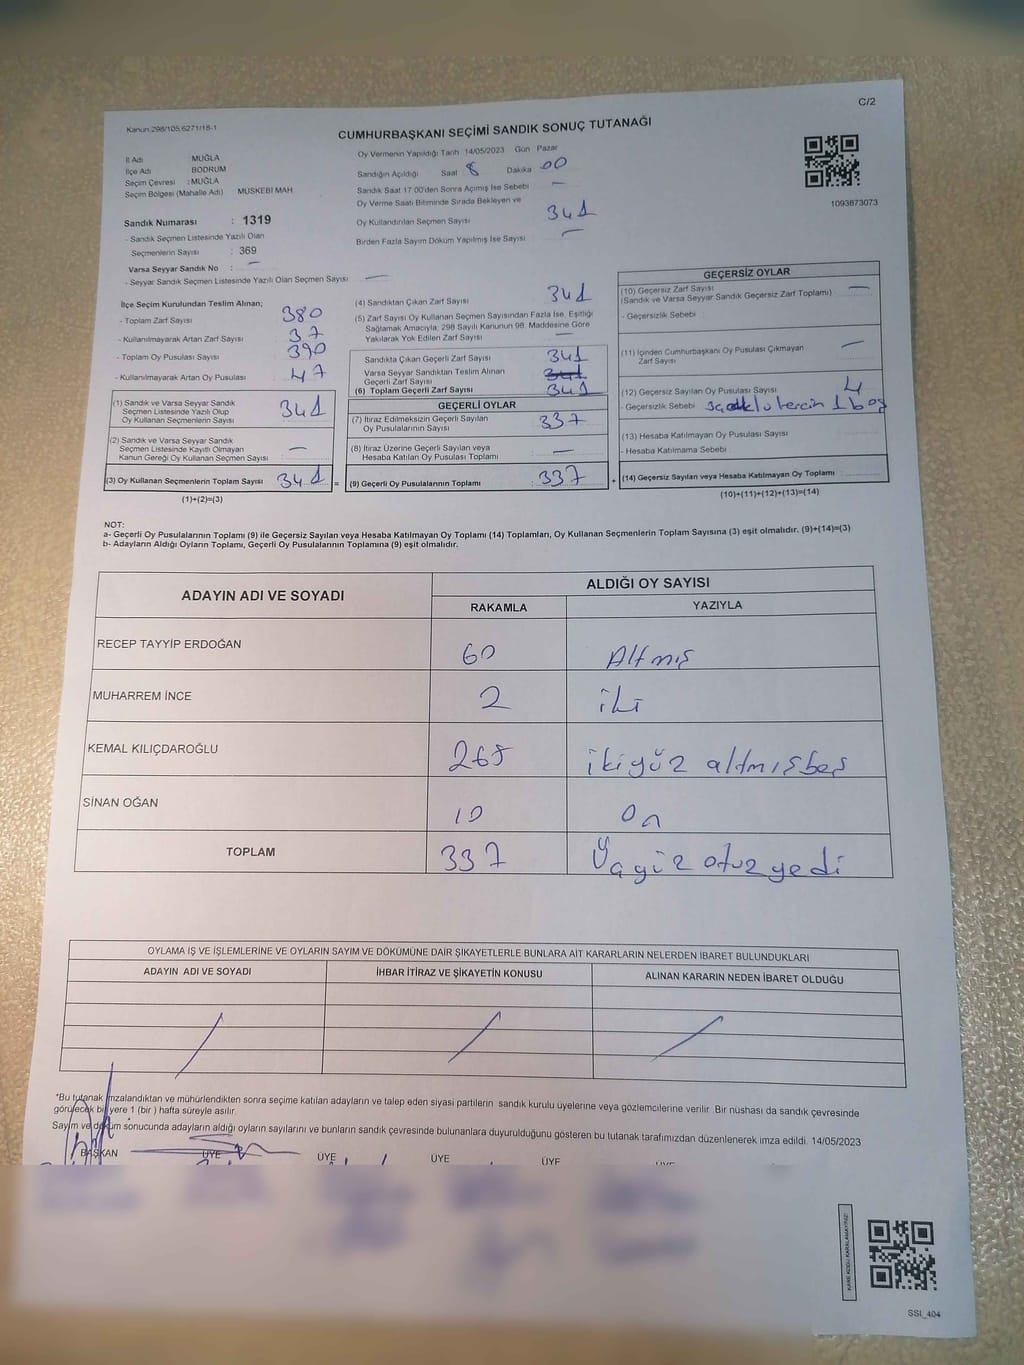 C/2
Kanun:298/105,6271/18-1
CUMHURBAŞKANI SEÇİMİ SANDIK SONUÇ TUTANAĞI
İl Adı MUĞLA
İlçe Adı BODRUM
Seçim Çevresi : MUĞLA
Seçim Bölgesi (Mahalle Adı) MÜSKEBİ MAH
Sandık Numarası : 1319
- Sandık Seçmen Listesinde Yazılı Olan
Seçmenlerin Sayısı : 369
Varsa Seyyar Sandık No : –
- Seyyar Sandık Seçmen Listesinde Yazılı Olan Seçmen Sayısı –
Oy Vermenin Yapıldığı Tarih 14/05/2023 Gün Pazar
Sandığın Açıldığı Saat 8 Dakika 00
Sandık Saat 17:00'den Sonra Açımış İse Sebebi –
Oy Verme Saati Bitiminde Sırada Bekleyen ve
Oy Kullandırılan Seçmen Sayısı 341
Birden Fazla Sayım Döküm Yapılmış İse Sayısı –
1093873073
İlçe Seçim Kurulundan Teslim Alınan;
- Toplam Zarf Sayısı 380
- Kullanılmayarak Artan Zarf Sayısı 37
- Toplam Oy Pusulası Sayısı 390
- Kullanılmayarak Artan Oy Pusulası 47
(1) Sandık ve Varsa Seyyar Sandık
Seçmen Listesinde Yazılı Olup
Oy Kullanan Seçmenlerin Sayısı 341
(2) Sandık ve Varsa Seyyar Sandık
Seçmen Listesinde Kayıtlı Olmayan
Kanun Gereği Oy Kullanan Seçmen Sayısı –
(3) Oy Kullanan Seçmenlerin Toplam Sayısı 341 =
(1)+(2)=(3)
(4) Sandıktan Çıkan Zarf Sayısı 341
(5) Zarf Sayısı Oy Kullanan Seçmen Sayısından Fazla İse, Eşitliği
Sağlamak Amacıyla, 298 Sayılı Kanunun 98. Maddesine Göre
Yakılarak Yok Edilen Zarf Sayısı –
Sandıkta Çıkan Geçerli Zarf Sayısı 341
Varsa Seyyar Sandıktan Teslim Alınan
Geçerli Zarf Sayısı 341
(6) Toplam Geçerli Zarf Sayısı 341
GEÇERLİ OYLAR
(7) İtiraz Edilmeksizin Geçerli Sayılan
Oy Pusulalarının Sayısı 337
(8) İtiraz Üzerine Geçerli Sayılan veya
Hesaba Katılan Oy Pusulası Toplamı –
(9) Geçerli Oy Pusulalarının Toplamı : 337 +
GEÇERSİZ OYLAR
(10) Geçersiz Zarf Sayısı –
(Sandık ve Varsa Seyyar Sandık Geçersiz Zarf Toplamı)
- Geçersizlik Sebebi
(11) İçinden Cumhurbaşkanı Oy Pusulası Çıkmayan
Zarf Sayısı –
(12) Geçersiz Sayılan Oy Pusulası Sayısı 4
- Geçersizlik Sebebi tercih 1 boş
(13) Hesaba Katılmayan Oy Pusulası Sayısı
- Hesaba Katılmama Sebebi
(14) Geçersiz Sayılan veya Hesaba Katılmayan Oy Toplamı
(10)+(11)+(12)+(13)=(14)
NOT:
a- Geçerli Oy Pusulalarının Toplamı (9) ile Geçersiz Sayılan veya Hesaba Katılmayan Oy Toplamı (14) Toplamları, Oy Kullanan Seçmenlerin Toplam Sayısına (3) eşit olmalıdır. (9)+(14)=(3)
b- Adayların Aldığı Oyların Toplamı, Geçerli Oy Pusulalarının Toplamına (9) eşit olmalıdır.
ADAYIN ADI VE SOYADI ALDIĞI OY SAYISI
RAKAMLA YAZIYLA
RECEP TAYYİP ERDOĞAN 60 Altmış
MUHARREM İNCE 2 iki
KEMAL KILIÇDAROĞLU 265 ikiyüz altmışbeş
SİNAN OĞAN 10 On
TOPLAM 337 Üçyüz otuz yedi
OYLAMA İŞ VE İŞLEMLERİNE VE OYLARIN SAYIM VE DÖKÜMÜNE DAİR ŞİKAYETLERLE BUNLARA AİT KARARLARIN NELERDEN İBARET BULUNDUKLARI
ADAYIN ADI VE SOYADI İHBAR İTİRAZ VE ŞİKAYETİN KONUSU ALINAN KARARIN NEDEN İBARET OLDUĞU
*Bu tutanak imzalandıktan ve mühürlendikten sonra seçime katılan adayların ve talep eden siyasi partilerin sandık kurulu üyelerine veya gözlemcilerine verilir. Bir nüshası da sandık çevresinde
görülecek bir yere 1 (bir ) hafta süreyle asılır.
Sayım ve döküm sonucunda adayların aldığı oyların sayılarını ve bunların sandık çevresinde bulunanlara duyurulduğunu gösteren bu tutanak tarafımızdan düzenlenerek imza edildi. 14/05/2023
BAŞKAN ÜYE ÜYE ÜYE ÜYE
KARE KODU KARALAMAYINIZ!
SSI_404